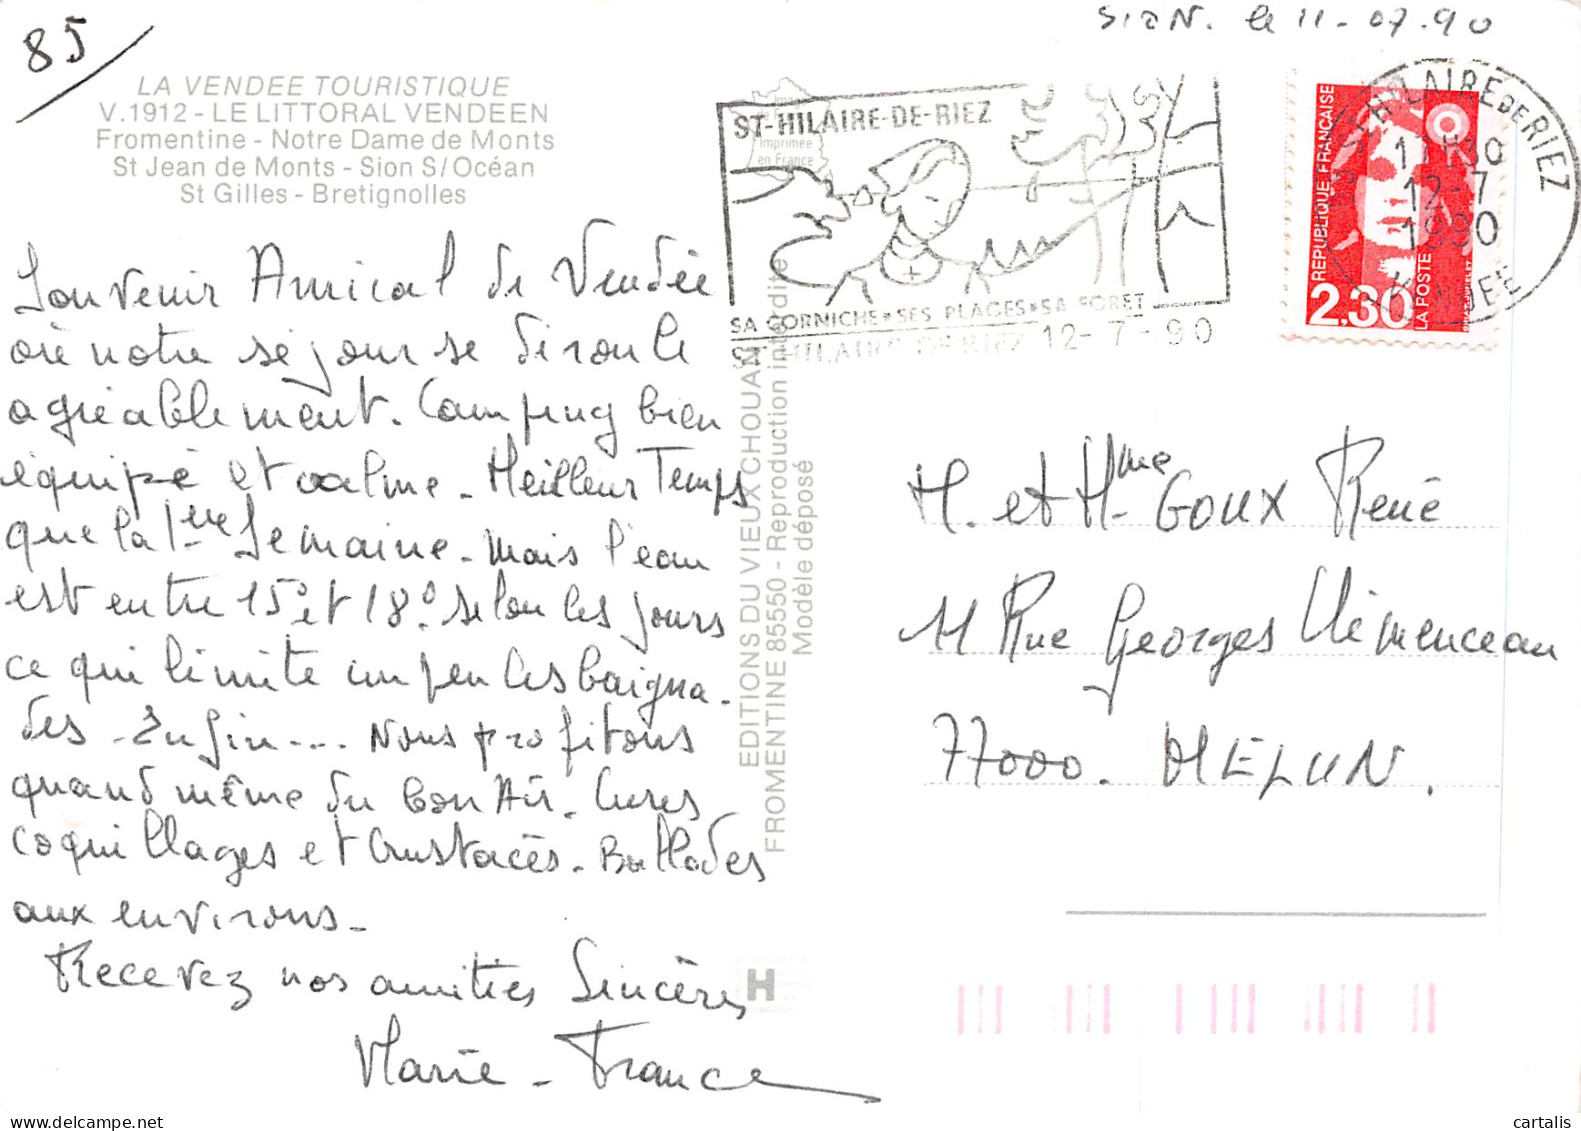 85
Sion. le 11-07.90
LA VENDEE TOURISTIQUE
V.1912 - LE LITTORAL VENDEEN
Fromentine - Notre Dame de Monts
St Jean de Monts - Sion S/Océan
St Gilles - Bretignolles
Souvenir Amical de Vendée
où notre séjour se déroule
agréablement. Camping bien
équipé et calme - Meilleur Temps
que la 1ère Semaine - mais l'eau
est entre 15° et 18° selon les jours
ce qui limite un peu les baigna-
des - Enfin.... Nous profitons
quand même du bon Air - Cures
coquillages et Crustacés - Ballades
aux environs -
Recevez nos amitiés Sincères
Marie - France
Imprimée
en France
EDITIONS DU VIEUX CHOUAN
FROMENTINE 85550 - Reproduction interdite
Modèle déposé
H
ST-HILAIRE-DE-RIEZ
SA CORNICHE * SES PLAGES * SA FORET
ST HILAIRE DE RIEZ 12-7-90
REPUBLIQUE FRANÇAISE
LA POSTE
2,30
ST HILAIRE DE RIEZ
12-7
1990
VENDEE
M. et Mme GOUX René
11 Rue Georges Clémenceau
77000. MELUN.
cartalis.com